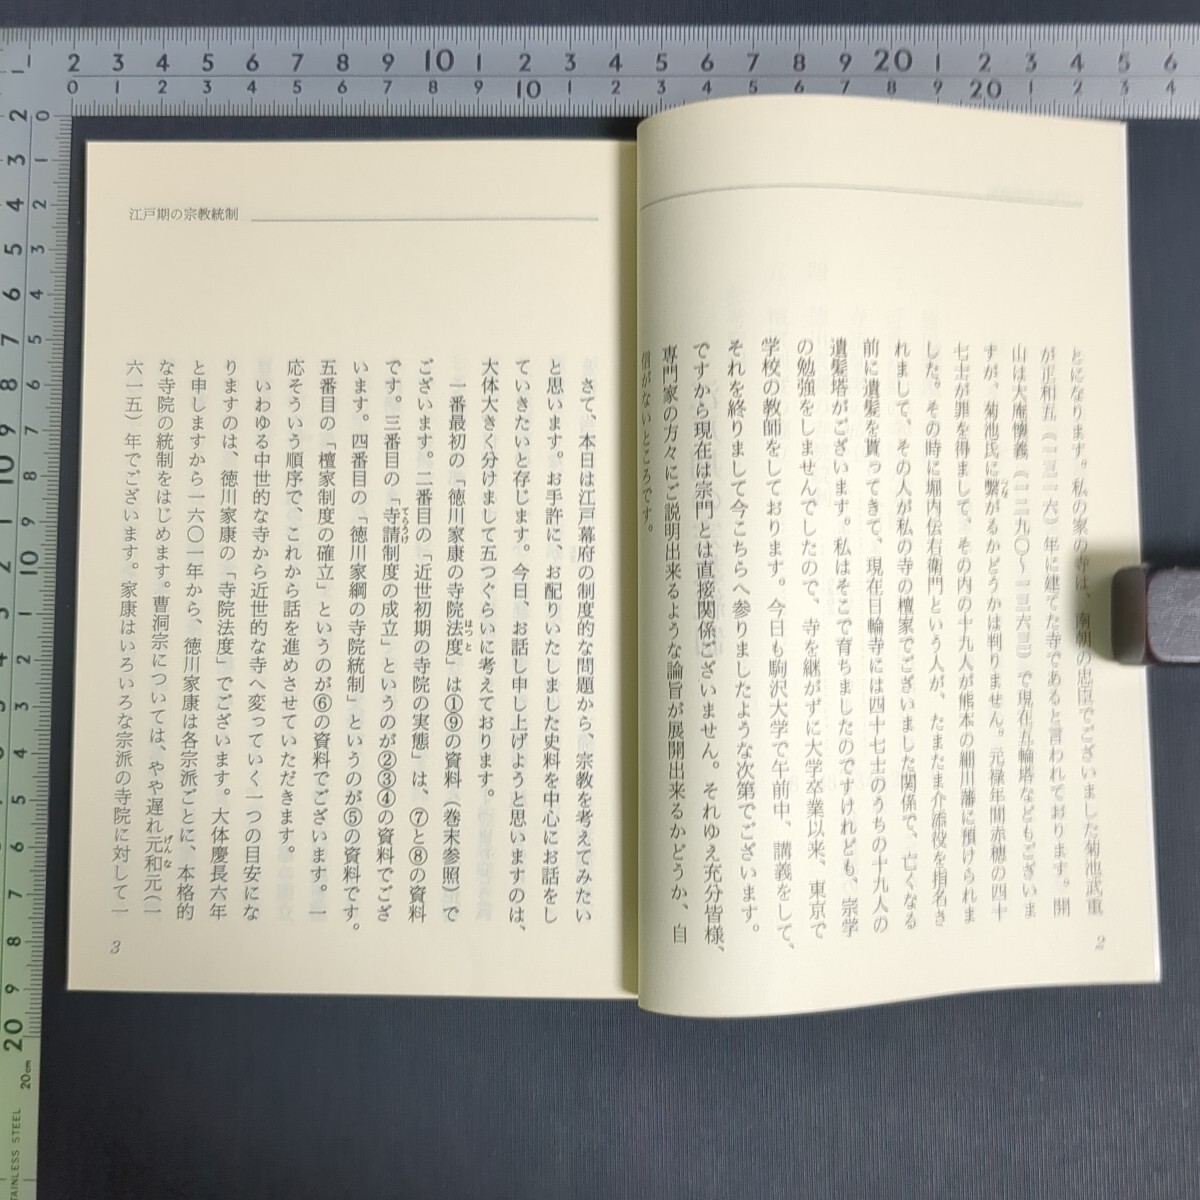 とになります。私の家の寺は、南朝の忠臣でございました菊池武重
が正和五(一三一六)年に建てた寺であると言われております。開
山は大庵懐義(一二九〇〜一三六三)で現在五輪塔などもございま
すが、菊池氏に繋がるかどうかは判りません。元禄年間赤穂の四十
七士が罪を得まして、その内の十九人が熊本の細川藩に預けられま
した。その時に堀内伝右衛門という人が、たまたま介添役を指名さ
れまして、その人が私の寺の檀家でございました関係で、亡くなる
前に遺髪を貰ってきて、現在日輪寺には四十七士のうちの十九人の
遺髪塔がございます。私はそこで育ちましたのですけれども、宗学
の勉強をしませんでしたので、寺を継がずに大学卒業以来、東京で
学校の教師をしております。今日も駒沢大学で午前中、講義をして、
それを終りまして今こちらへ参りましたような次第でございます。
ですから現在は宗門とは直接関係ございません。それゆえ充分皆様、
専門家の方々にご説明出来るような論旨が展開出来るかどうか、自
信がないところです。
2
江戸期の宗教統制
さて、本日は江戸幕府の制度的な問題から、宗教を考えてみたい
と思います。お手許に、お配りいたしました史料を中心にお話をし
ていきたいと存じます。今日、お話し申し上げようと思いますのは、
大体大きく分けまして五つぐらいに考えております。
一番最初の「徳川家康の寺院法度」は①⑨の資料(巻末参照)で
ございます。二番目の「近世初期の寺院の実態」は、⑦と⑧の資料
です。三番目の「寺請制度の成立」というのが②③④の資料でござ
います。四番目の「徳川家綱の寺院統制」というのが⑤の資料です。
五番目の「檀家制度の確立」というのが⑥の資料でございます。一
応そういう順序で、これから話を進めさせていただきます。
いわゆる中世的な寺から近世的な寺へ変っていく一つの目安にな
りますのは、徳川家康の「寺院法度」でございます。大体慶長六年
と申しますから一六〇一年から、徳川家康は各宗派ごとに、本格的
な寺院の統制をはじめます。曹洞宗については、やや遅れ元和元(一
六一五)年でございます。家康はいろいろな宗派の寺院に対して一
3